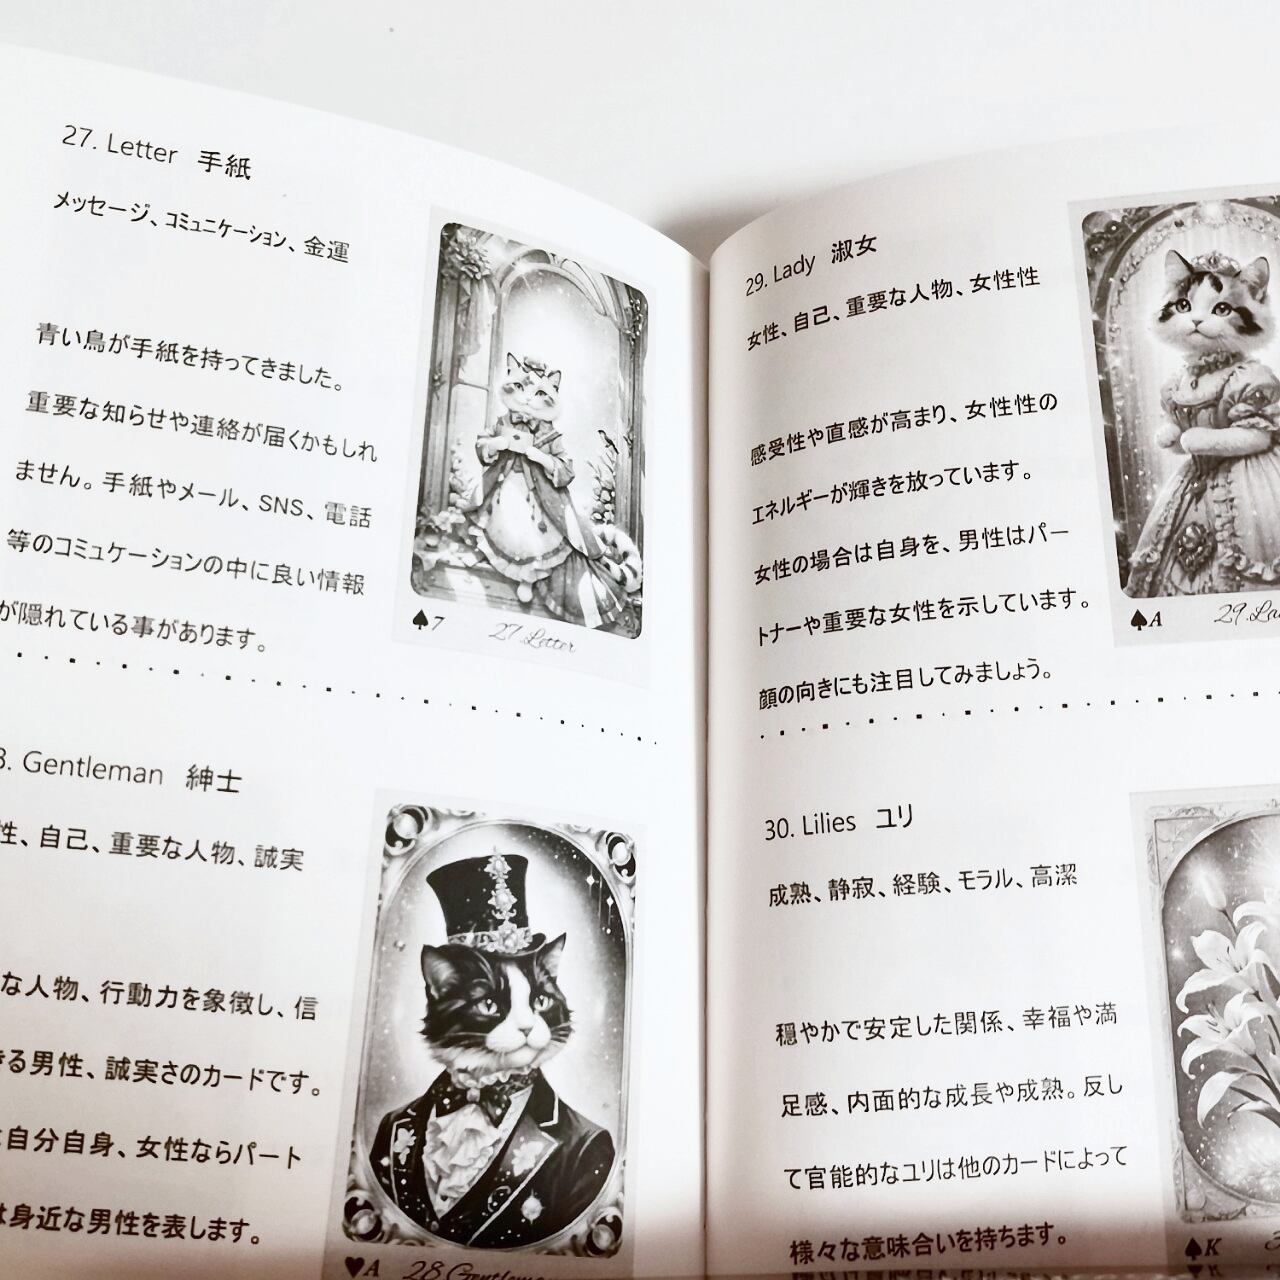 27. Letter 手紙
メッセージ、コミュニケーション、金運
青い鳥が手紙を持ってきました。
重要な知らせや連絡が届くかもしれ
ません。手紙やメール、SNS、電話
等のコミュケーションの中に良い情報
が隠れている事があります。
♠7 27.Letter
. Gentleman 紳士
性、自己、重要な人物、誠実
な人物、行動力を象徴し、信
きる男性、誠実さのカードです。
自分自身、女性ならパート
は身近な男性を表します。
♥A 28.Gentleman
29. Lady 淑女
女性、自己、重要な人物、女性性
感受性や直感が高まり、女性性の
エネルギーが輝きを放っています。
女性の場合は自身を、男性はパー
トナーや重要な女性を示しています。
顔の向きにも注目してみましょう。
♠A 29.La
30. Lilies ユリ
成熟、静寂、経験、モラル、高潔
穏やかで安定した関係、幸福や満
足感、内面的な成長や成熟。反し
て官能的なユリは他のカードによって
様々な意味合いを持ちます。
♠K 3